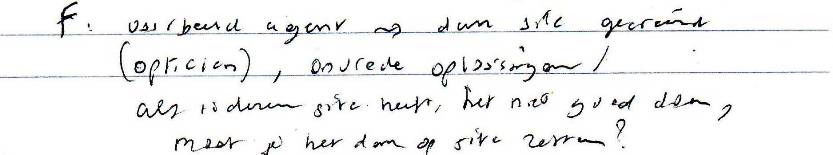 F. voorbeeld agent → dan site gecreëerd
(opticien), onvrede oplossingen /
als iedereen site heeft, het niet goed doen,
moet je het dan op site zetten?